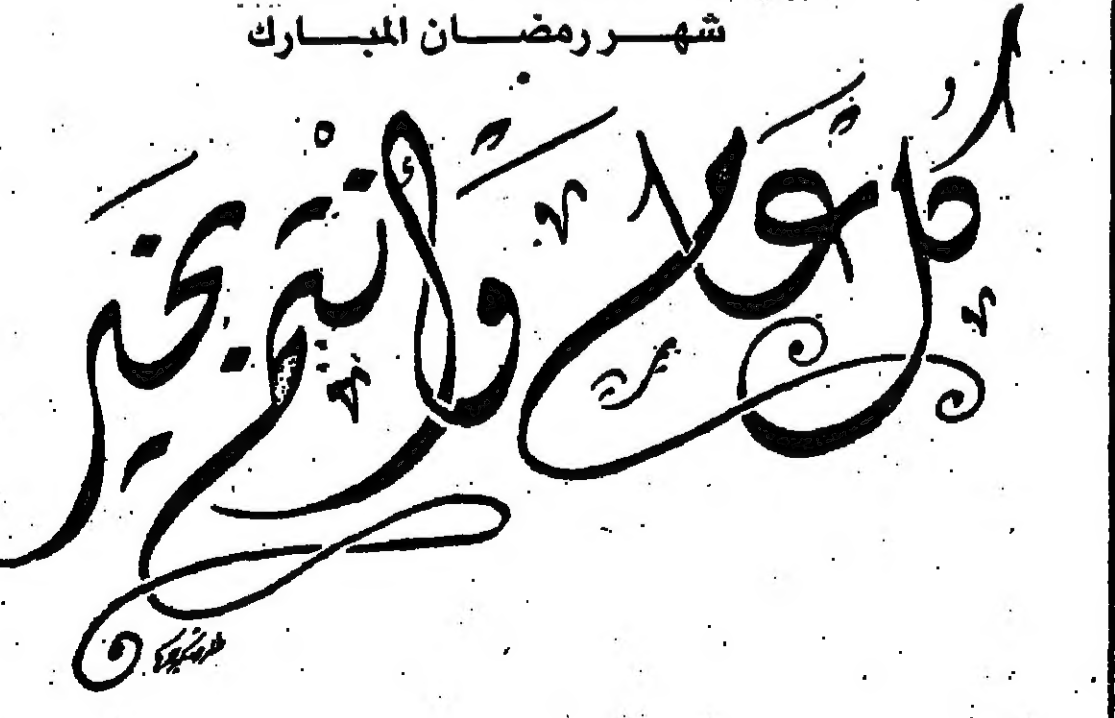 شهر رمضان المبارك
كل عام وأنتم بخير